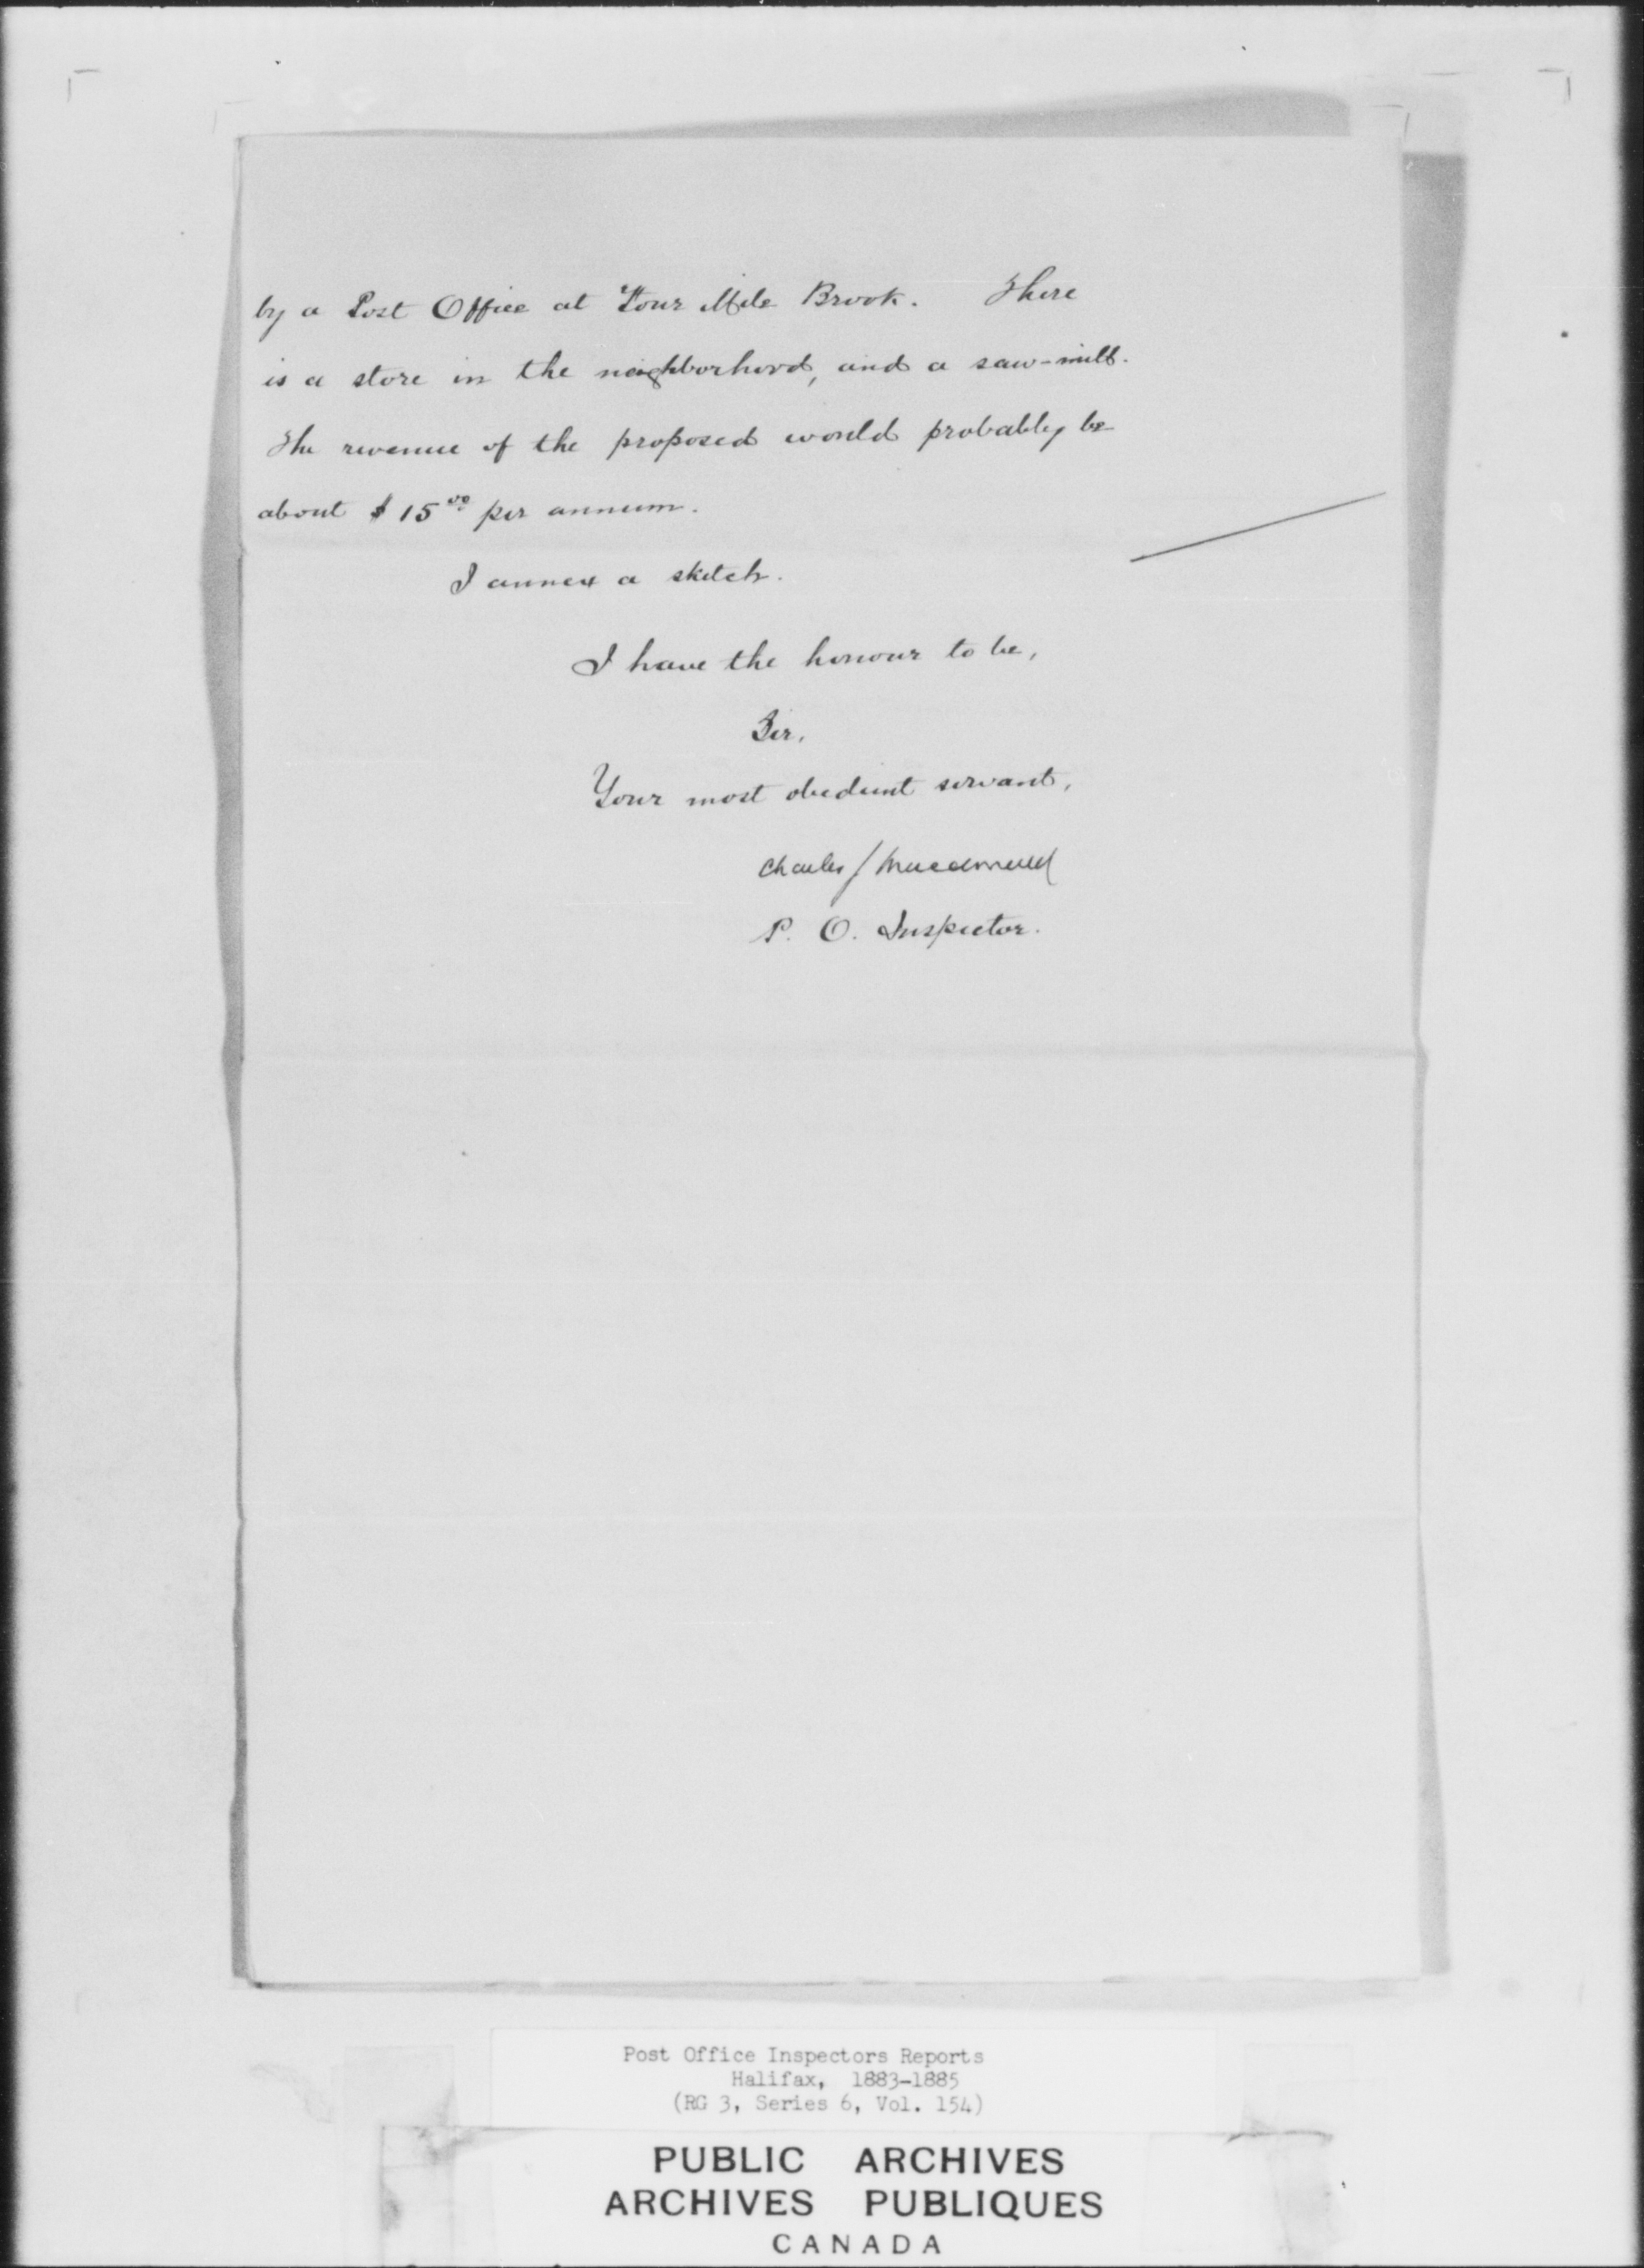 by a Post Office at Four Mile Brook. There
is a store in the neighborhood, and a saw-mill.
The revenue of the proposed would probably be
about $15.00 per annum.
I annex a sketch.
I have the honour to be,
Sir,
Your most obedient servant,
Charles J Macdonald
P. O. Inspector.
Post Office Inspectors Reports
Halifax, 1883-1885
(RG 3, Series 6, Vol. 154)
PUBLIC ARCHIVES
ARCHIVES PUBLIQUES
CANADA